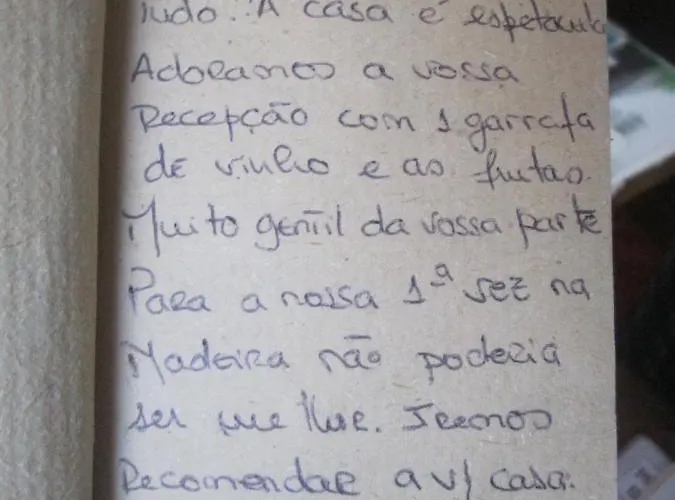 tudo. A casa é espetacula
Adoramos a vossa
Recepção com 1 garrafa
de vinho e as frutas.
Muito gentil da vossa parte
Para a nossa 1ª vez na
Madeira não poderia
ser melhor. Iremos
Recomendar a v/ casa.